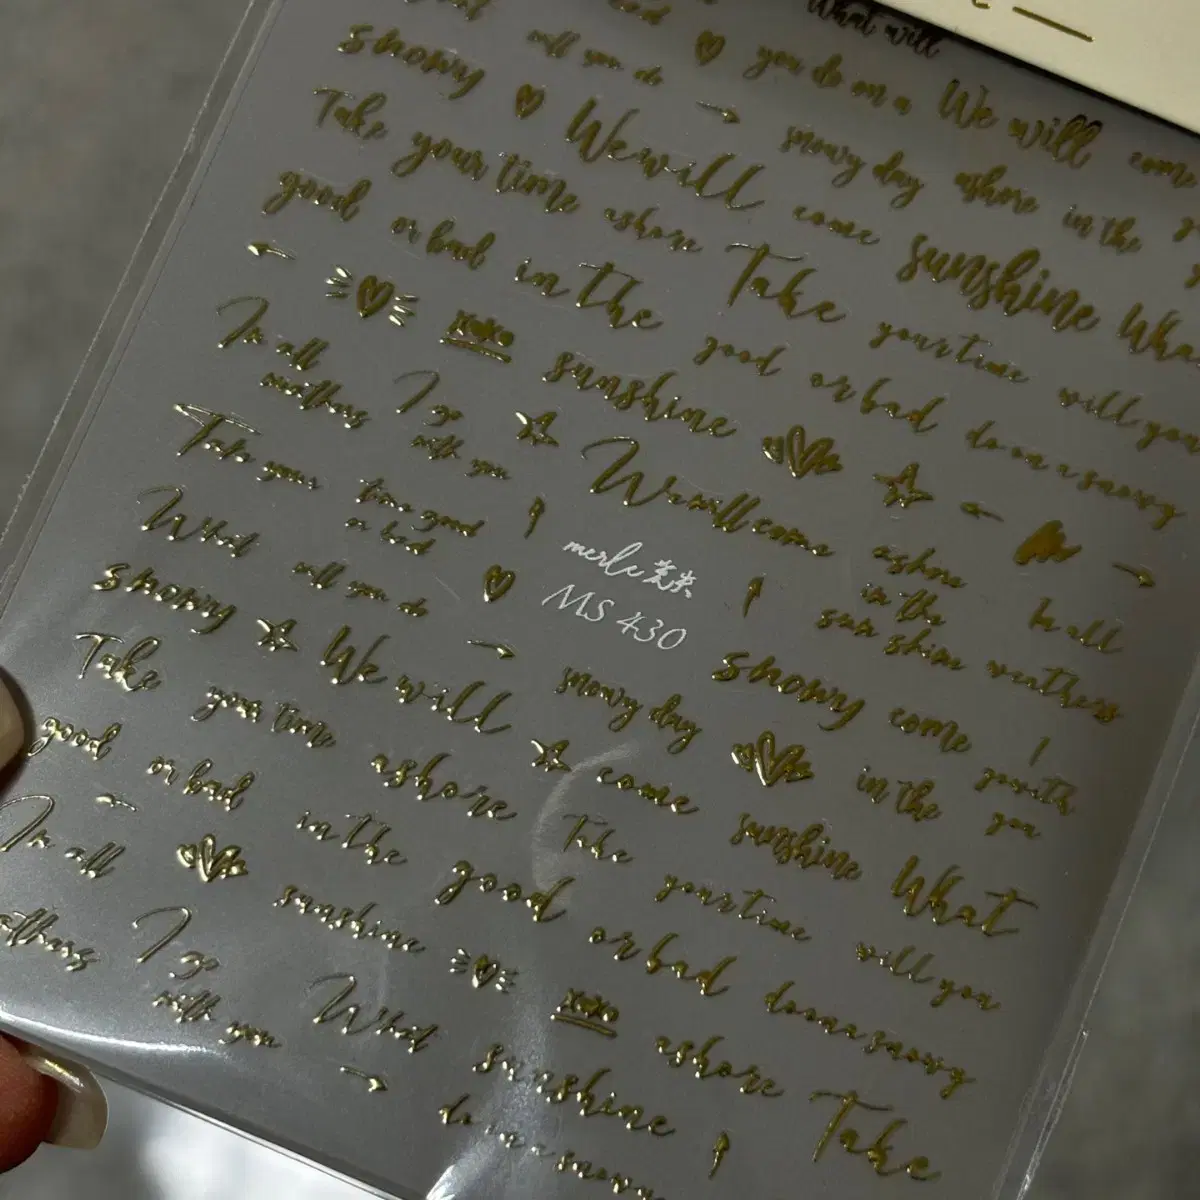 What will
snowy will you do you do on a We will come
Take your time We will snowy day ashore in the
good or bad in the ashore come sunshine
Take your time will you
good or bad do on a snowy
xoxo sunshine
In all weathers I go with you
Take your time good or bad We will come ashore in the sun shine
be all weathers
What will you do
merle
MS 430
snowy We will snowy day snowy come I go with you
Take your time ashore come in the
good or bad in the Take sunshine What
In all good your time will you
sunshine or bad do on a snowy
I go with you What xoxo ashore
sunshine Take
do on a snowy